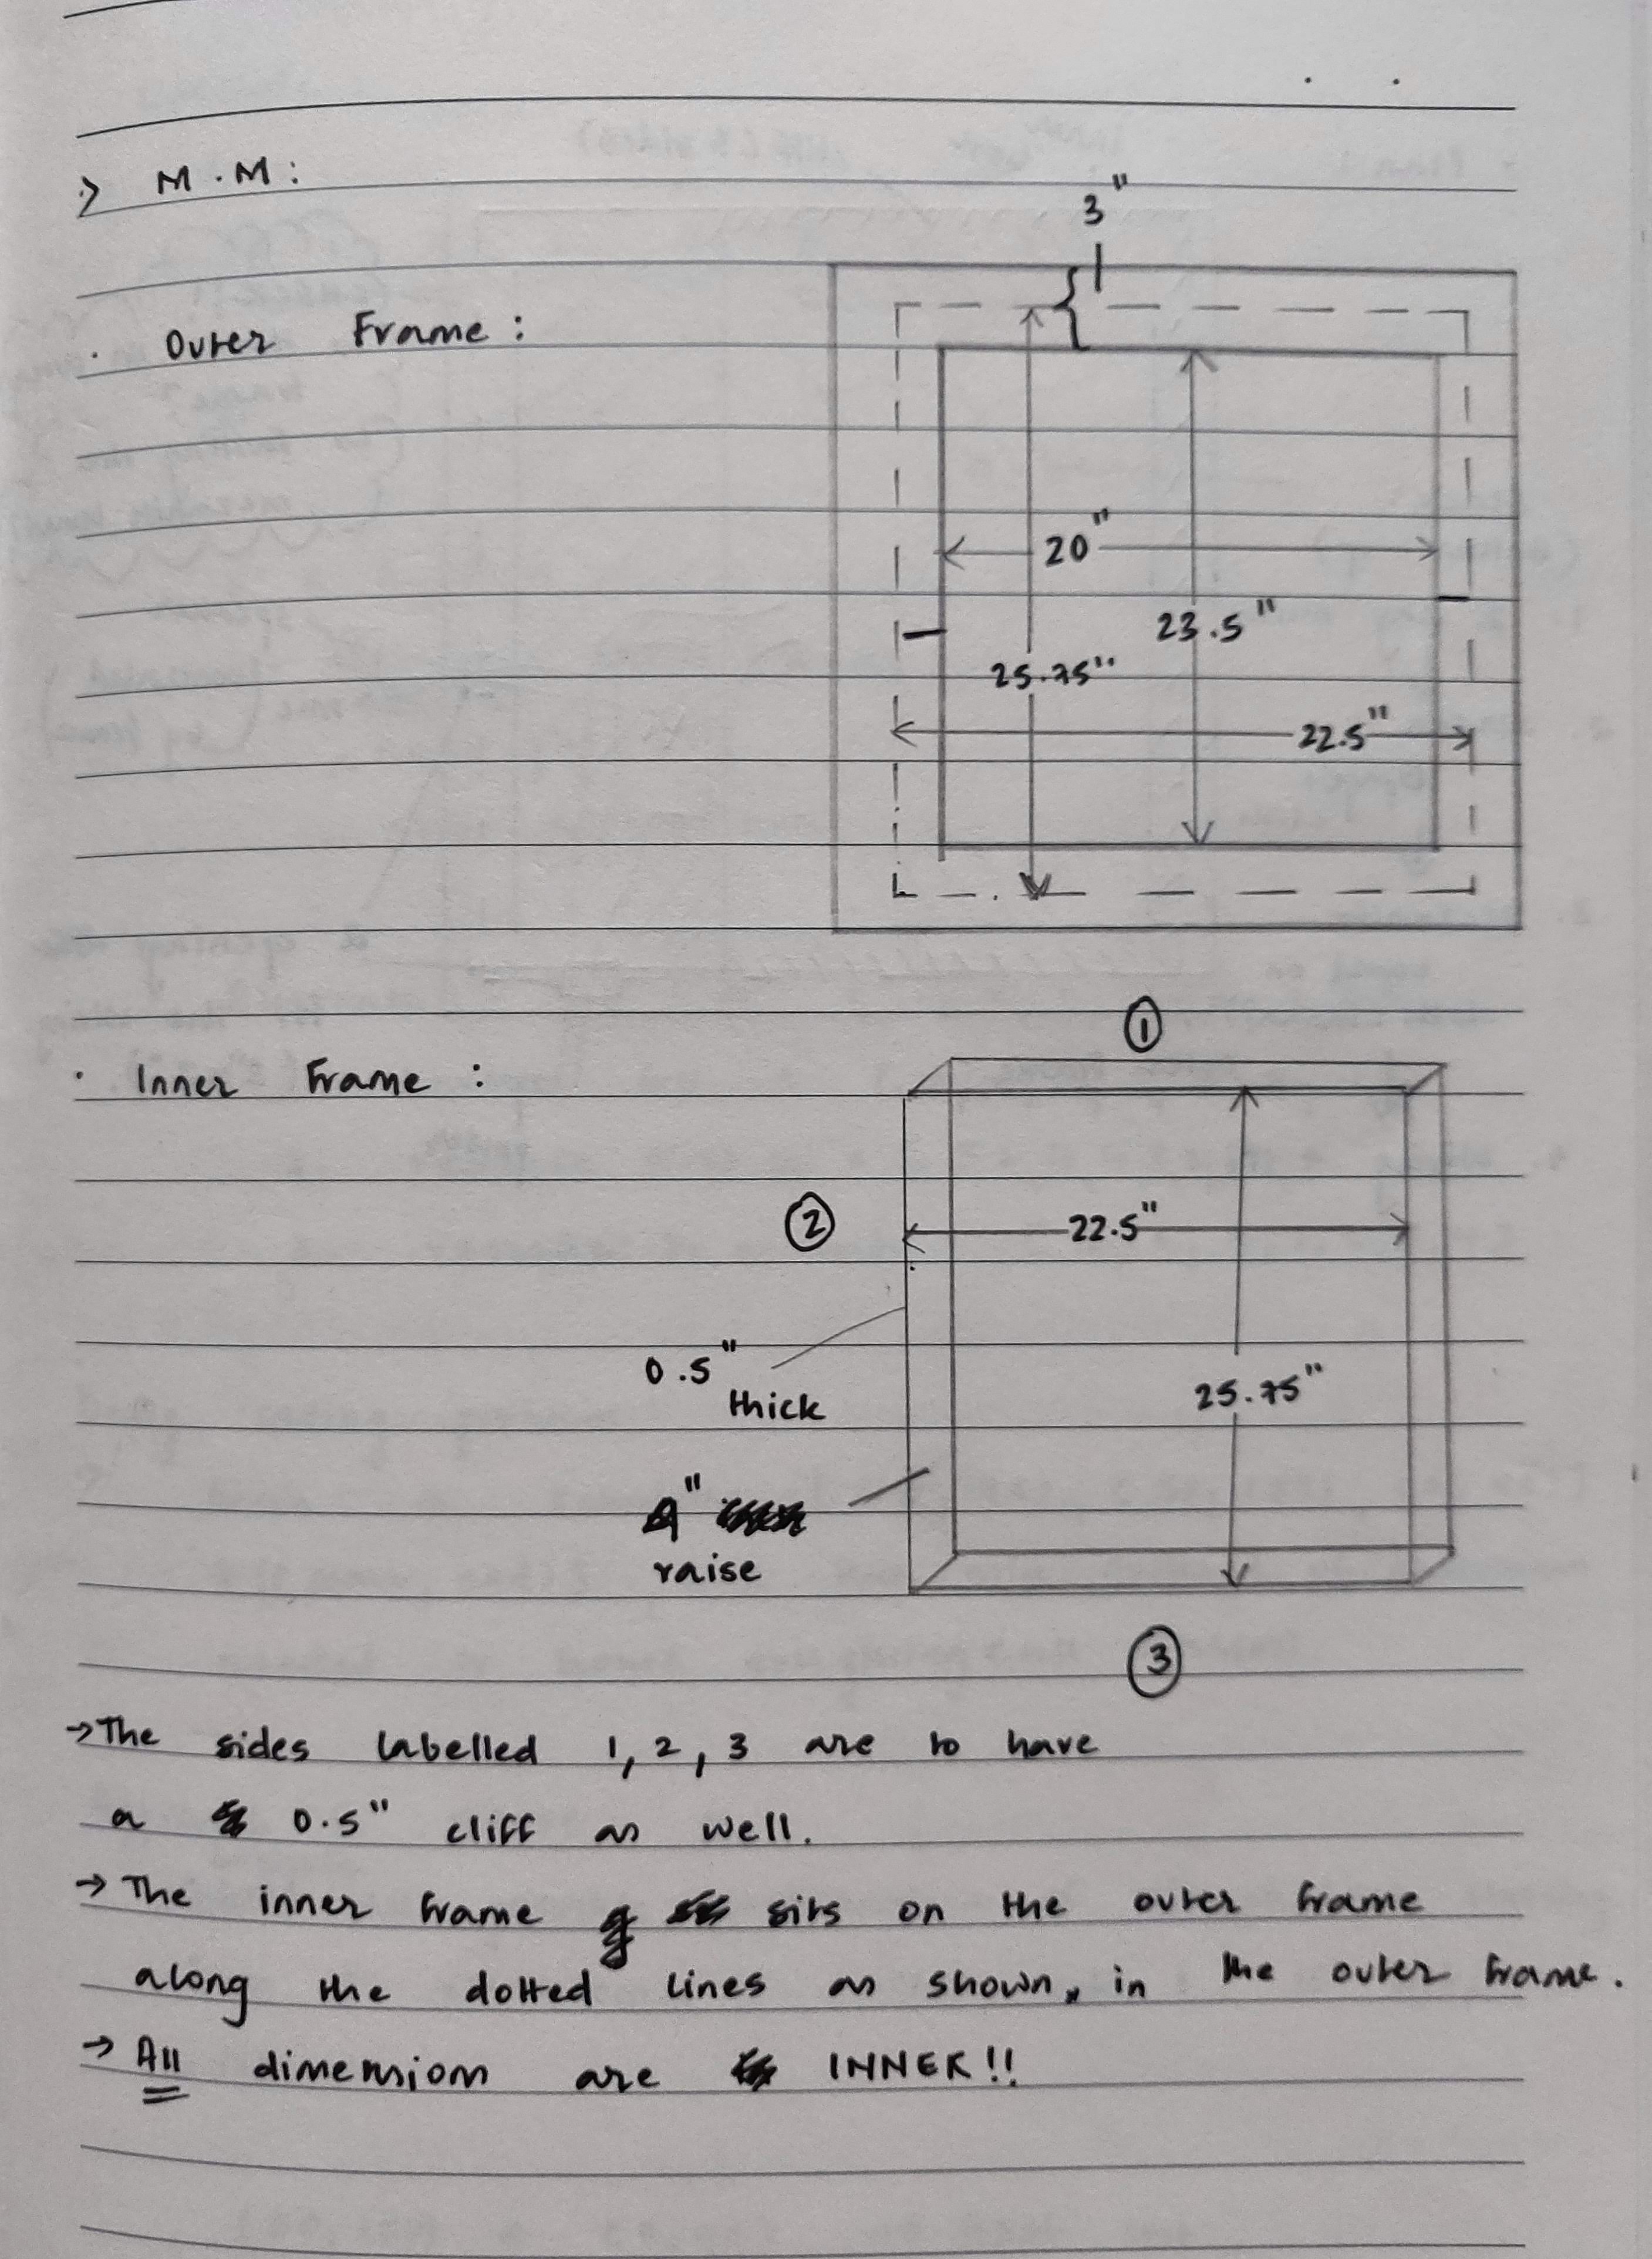 > M.M:
3"
· Outer Frame:
20"
23.5"
25.75"
22.5"
1
· Inner Frame:
2
22.5"
0.5"
thick
25.75"
raise
3
→ The sides labelled 1, 2, 3 are to have
a 0.5" cliff as well.
→ The inner frame sits on the outer frame
along the dotted lines as shown, in the outer frame.
→ All dimensions are INNER!!